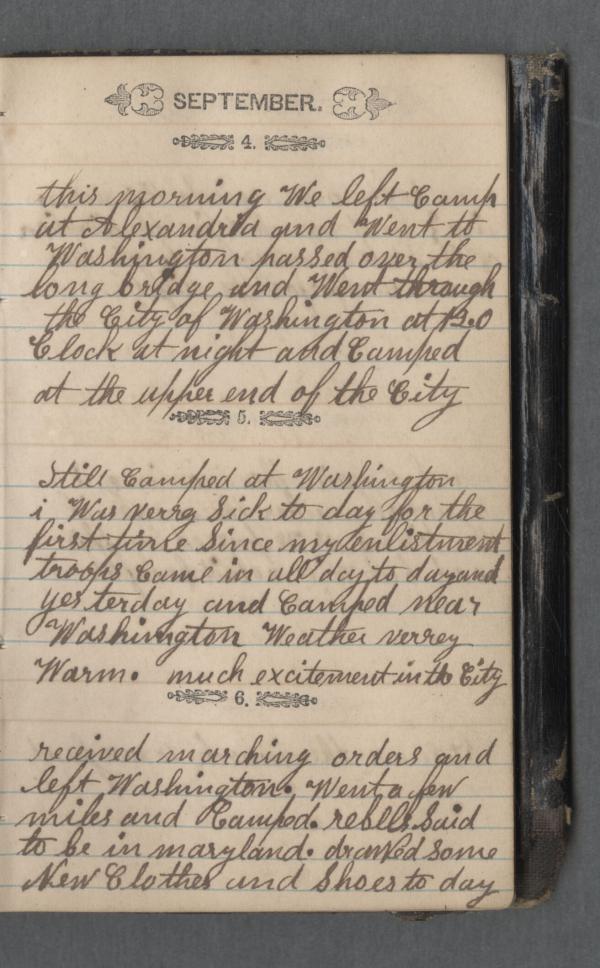 SEPTEMBER.
4.
this morning We left Camp
at Alexandria and Went to
Washington passed over the
long bridge and Went through
the City of Washington at 12.O
Clock at night and Camped
at the upper end of the City
5.
Still Camped at Washington
i Was verry Sick to day for the
first time Since my enlistment
troops Came in all day to day and
yesterday and Camped near
Washington Weather verrey
Warm. much excitement in the City
6.
received marching orders and
left Washington. Went a few
miles and Camped. rebells Said
to be in maryland. drawed Some
New Clothes and Shoes to day